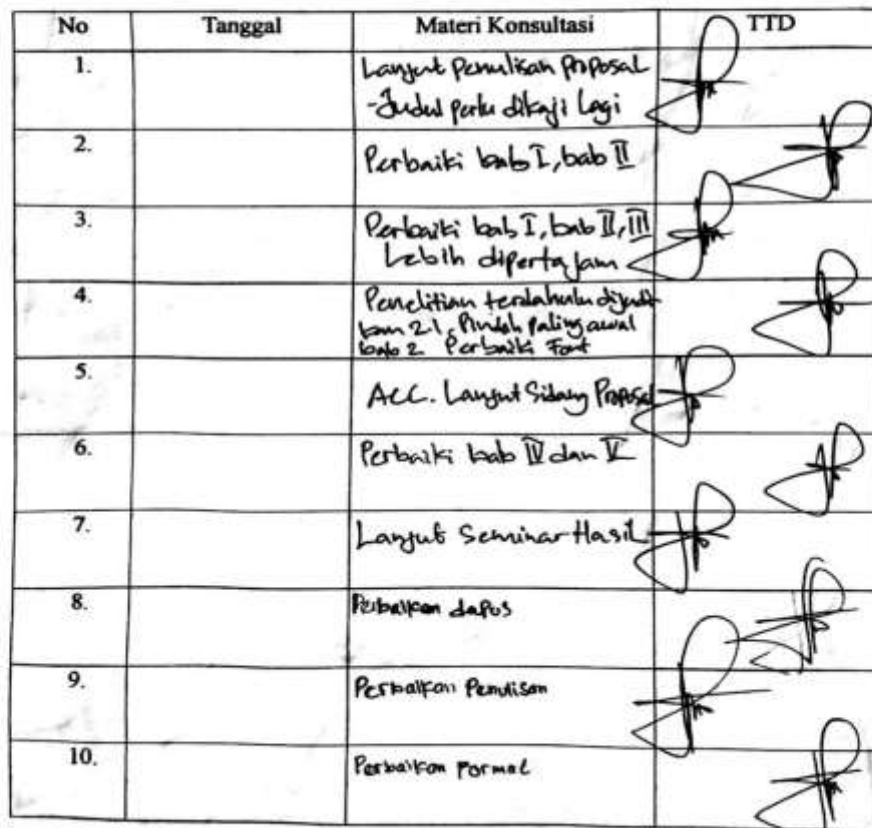 No Tanggal Materi Konsultasi TTD
1. Lanjut Penulisan proposal
- Judul perlu dikaji lagi
2. Perbaiki bab I, bab II
3. Perbaiki bab I, bab II, III
Lebih dipertajam
4. Penelitian terdahulu dijadi
kan 2.1, Pindah paling awal
bab 2 Perbaiki Font
5. ACC. Lanjut Sidang Proposal
6. Perbaiki bab IV dan V
7. Lanjut Seminar Hasil
8. Perbaikan dapus
9. Perbaikan Penulisan
10. Perbaikan Format